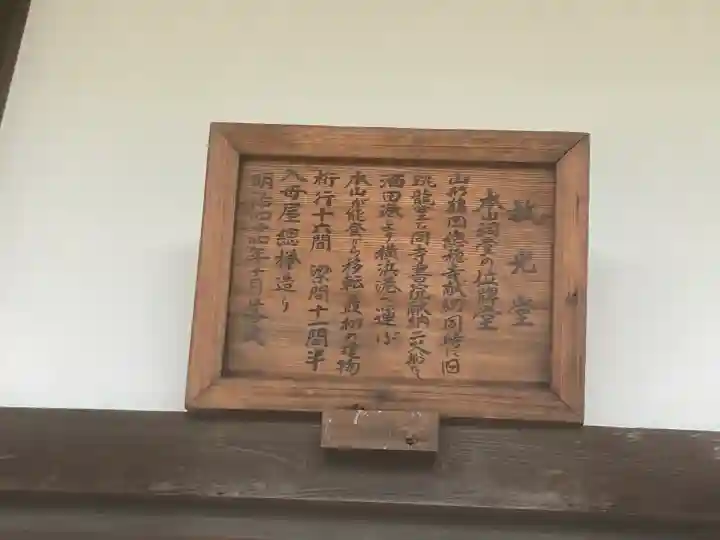 放光堂
本山祠堂の位牌堂
山形鶴岡總穏寺献納同時に旧
跳龍室も同寺書院献納二人船にて
酒田港より横浜港へ運ぶ
本山が能登から移転最初の建物
桁行十六間 梁間十一間半
入母屋總欅造り
明治四十四年十月